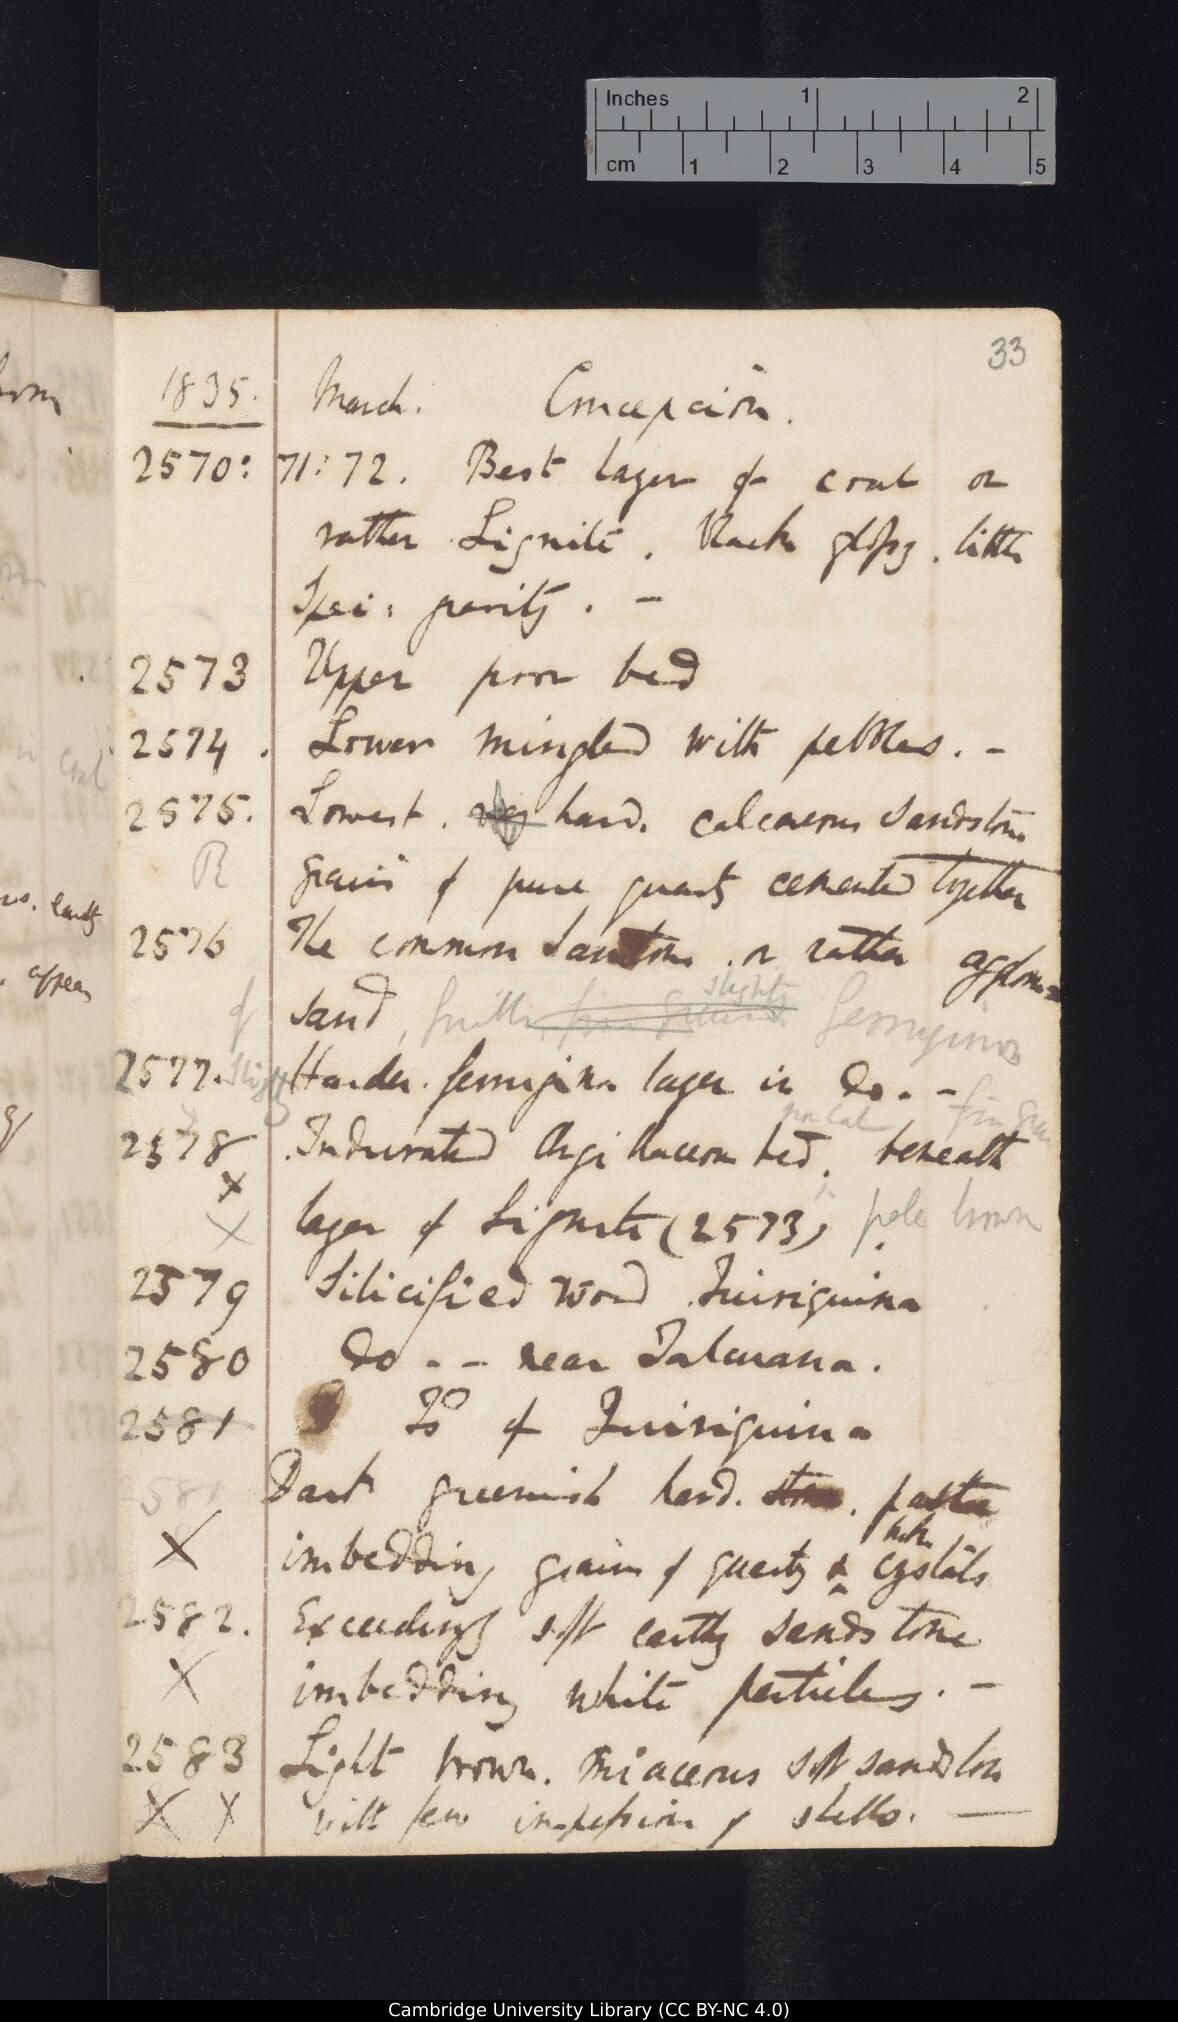 Inches 1 2
cm 1 2 3 4 5
33
1835. March. Concepcion.
2570: 71: 72. Best layer of coal or
rather Lignite. black glossy. little
Spec: gravity. –
2573 Upper poor bed
2574. Lower mingled with pebbles. –
2575. Lowest. very hard. calcareous Sandstone
R grains of pure quartz cemented together
2576 The common Sandstone. or rather agglom=
slightly
of sand, ferruginous
2577. Harder. ferruginous layer in Do. –
2578 Indurated Argillaceous bed. beneath
x
x layer of Lignite (2573) pale brown
2579 Silicified wood Quiriquina
2580 Do - - near Talcuana.
2581 Is of Quiriquina
Dark greenish hard. stone. paste
X imbedding grains of quartz & crystals
2582. Exceedingly soft earthy sandstone
X imbedding white particles. –
2583 Light brown. micaceous soft sandstone
X X with few impression of shells. —
coal
earthy
appear
Cambridge University Library (CC BY-NC 4.0)